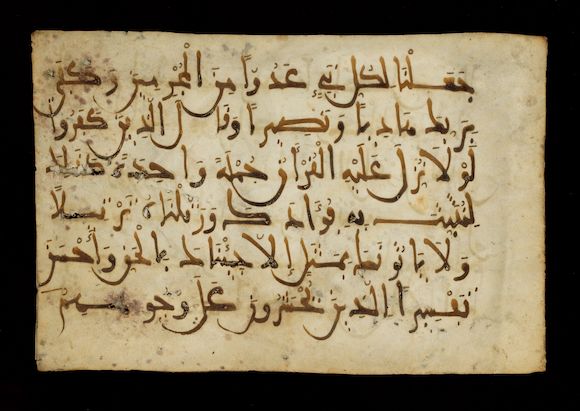 جعلنا لكل نبي عدوا من المجرمين وكفى
بربك هاديا ونصيرا وقال الذين كفروا
لولا نزل عليه القرآن جملة واحدة كذلك
لنثبت به فؤادك ورتلناه ترتيلا
ولا يأتونك بمثل إلا جئناك بالحق وأحسن
تفسيرا الذين يحشرون على وجوههم